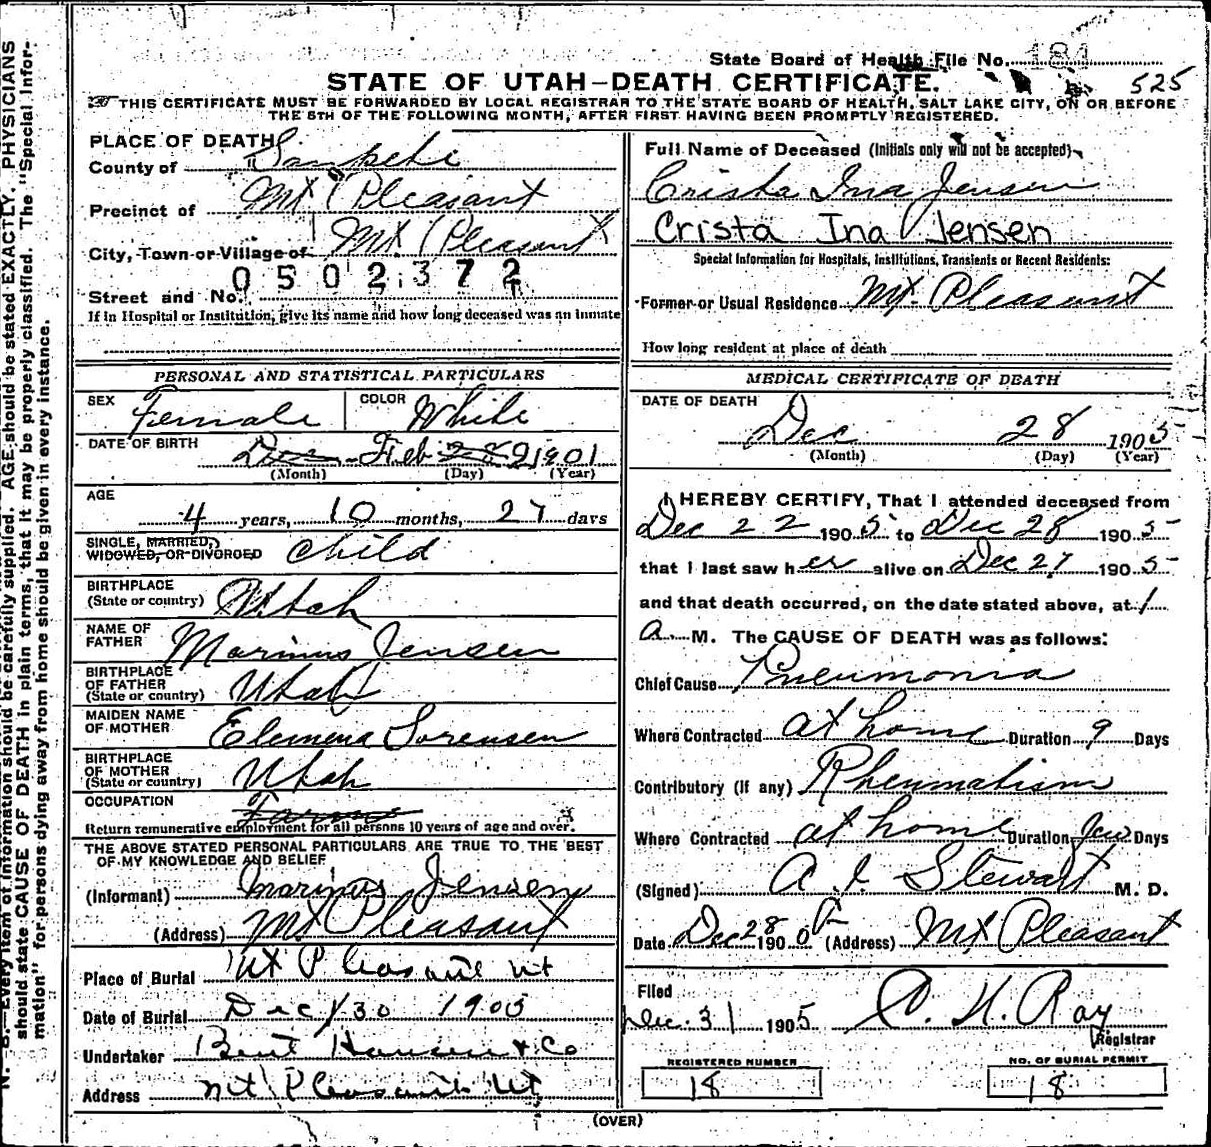 State Board of Health File No. 184
STATE OF UTAH-DEATH CERTIFICATE.
525
THIS CERTIFICATE MUST BE FORWARDED BY LOCAL REGISTRAR TO THE STATE BOARD OF HEALTH, SALT LAKE CITY, ON OR BEFORE
THE 5TH OF THE FOLLOWING MONTH, AFTER FIRST HAVING BEEN PROMPTLY REGISTERED.
PLACE OF DEATH
County of Sanpete
Precinct of Mt Pleasant
City, Town or Village of Mt Pleasant
0502372
Street and No.
If in Hospital or Institution, give its name and how long deceased was an inmate
PERSONAL AND STATISTICAL PARTICULARS
SEX Female COLOR White
DATE OF BIRTH Dec Feb 28 1901
(Month) (Day) (Year)
AGE
4 years, 10 months, 27 days
SINGLE, MARRIED,
WIDOWED, OR DIVORCED child
BIRTHPLACE
(State or country) Utah
NAME OF
FATHER Marinus Jensen
BIRTHPLACE
OF FATHER
(State or country) Utah
MAIDEN NAME
OF MOTHER Elemena Sorensen
BIRTHPLACE
OF MOTHER
(State or country) Utah
OCCUPATION
Return remunerative employment for all persons 10 years of age and over.
THE ABOVE STATED PERSONAL PARTICULARS ARE TRUE TO THE BEST
OF MY KNOWLEDGE AND BELIEF
(Informant) Marinus Jensen
(Address) Mt Pleasant
Place of Burial Mt Pleasant Ut
Date of Burial Dec 30 1905
Undertaker Bent Hansen & Co
Address Mt Pleasant Ut
Full Name of Deceased (Initials only will not be accepted)
Crista Ina Jensen
Crista Ina Jensen
Special Information for Hospitals, Institutions, Transients or Recent Residents:
Former or Usual Residence Mt. Pleasant
How long resident at place of death
MEDICAL CERTIFICATE OF DEATH
DATE OF DEATH
Dec 28 1905
(Month) (Day) (Year)
I HEREBY CERTIFY, That I attended deceased from
Dec 22 1905 to Dec 28 1905
that I last saw her alive on Dec 27 1905
and that death occurred, on the date stated above, at 1
a. M. The CAUSE OF DEATH was as follows:
Chief Cause Pneumonia
Where Contracted at home Duration 9 Days
Contributory (if any) Rheumatism
Where Contracted at home Duration few Days
(Signed) A. I. Stewart M. D.
Date Dec 28 190 (Address) Mt Pleasant
Filed
Dec. 31 1905 C. H. Ray
Registrar
REGISTERED NUMBER
18
NO. OF BURIAL PERMIT
18
(OVER)
N. B.—Every item of information should be carefully supplied. AGE should be stated EXACTLY. PHYSICIANS
should state CAUSE OF DEATH in plain terms, that it may be properly classified. The "Special Infor-
mation" for persons dying away from home should be given in every instance.